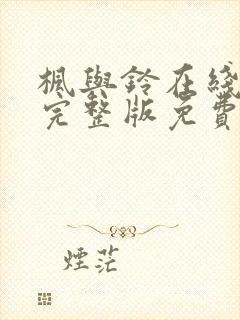 楓與鈴在綫
完整版免費
煙茫